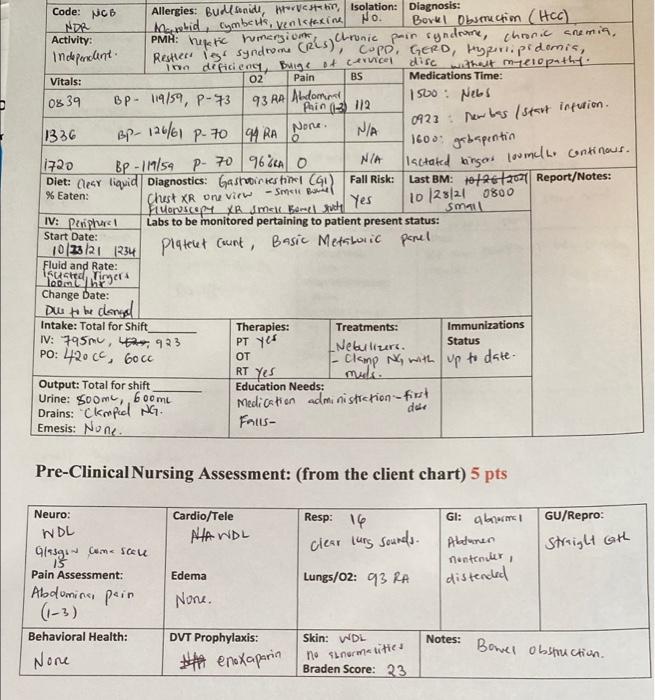 Code: NCB
NDR
Allergies: Budesonide, Atorvastatin,
Macrobid, Cymbalta, Venlafaxine
Isolation:
No.
Diagnosis:
Bowel Obstruction (HCC)
Activity:
Independent.
PMH: hepatic hemangioma, chronic pain syndrome, chronic anemia,
Restless legs syndrome (RLS), COPD, GERD, Hyperlipidemia,
Iron deficiency, Bulge of cervical disc without myelopathy.
Vitals: O2 Pain BS
0839 BP - 119/59, P-73 93 RA Abdominal Pain (1-3) 112
1336 BP- 126/61 P- 70 94 RA None. 0 N/A
1720 BP - 119/59 P- 70 96% RA 0 N/A
Medications Time:
1500: Nebs
0923: New bag / start infusion.
1600: gabapentin
lactated ringers 100mL/hr continous.
Diet: clear liquid
% Eaten:
Diagnostics: Gastrointestinal (GI) - Small Bowel
Chest XR one view
Fluoroscopy XR Small Bowel study
Fall Risk:
Yes
Last BM: 10/26/2021
10/28/21 0800
small
Report/Notes:
IV: Peripheral
Start Date:
10/23/21 1234
Labs to be monitored pertaining to patient present status:
Platelet Count, Basic Metabolic panel
Fluid and Rate:
lactated ringers
100mL/hr
Change Date:
Due to be changed
Intake: Total for Shift
IV: 795mL, 923
PO: 420 cc, 60cc
Therapies:
PT yes
OT
RT Yes
Treatments:
- Nebulizers.
- Clamp NG with
meds.
Immunizations
Status
up to date.
Output: Total for shift
Urine: 800mL, 600mL
Drains: Clamped NG.
Emesis: None.
Education Needs:
Medication administration - first
dose
Falls-
Pre-Clinical Nursing Assessment: (from the client chart) 5 pts
Neuro:
WDL
Glasgow coma scale
15
Cardio/Tele
N/A WDL
Resp: 16
clear lung sounds.
GI: abnormal
Abdomen
nontender,
distended
GU/Repro:
Straight Cath
Pain Assessment:
Abdominal pain
(1-3)
Edema
None.
Lungs/O2: 93 RA
Behavioral Health:
None
DVT Prophylaxis:
N/A enoxaparin
Skin: WDL
no abnormalities
Braden Score: 23
Notes: Bowel obstruction.